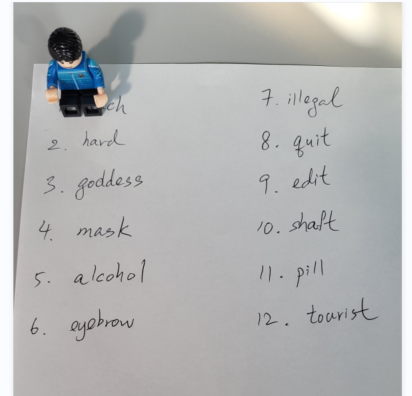 ch
2. hard
3. goddess
4. mask
5. alcohol
6. eyebrow
7. illegal
8. quit
9. edit
10. shaft
11. pill
12. tourist